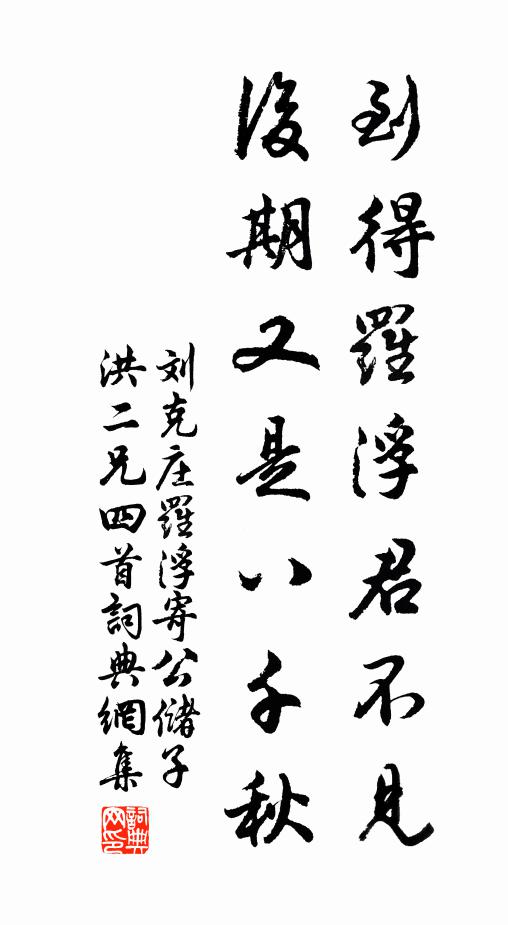 到得羅浮君不見
後期又是八千秋
刘克庄羅浮寄公儲子
洪二兄四首詞典網集
詞典
网印